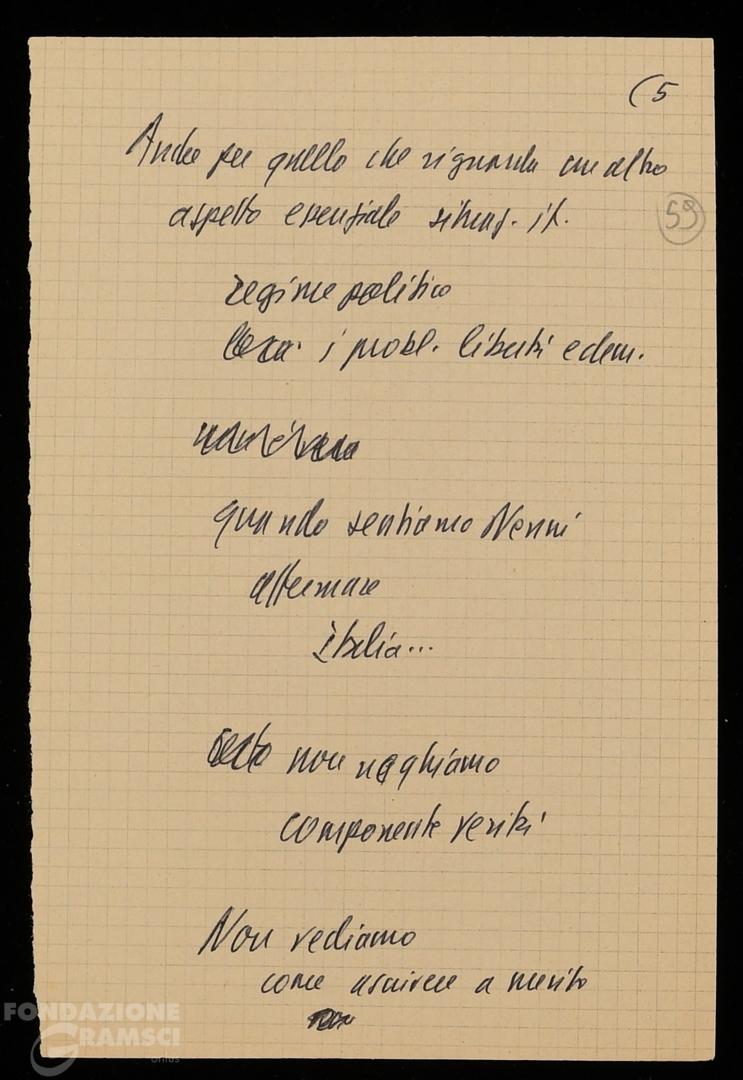 (5
Anche per quello che riguarda un altro
aspetto essenziale situaz. it.
59
regime politico
i probl. libertà e dem.
quando sentiamo Nenni
affermare
Italia...
non neghiamo
componente verità
Non vediamo
come ascrivere a merito
FONDAZIONE
GRAMSCI
onlus